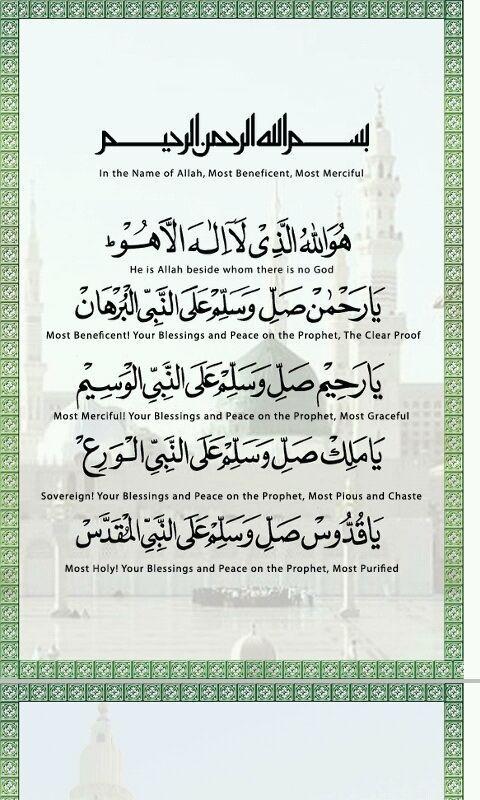 بسم الله الرحمن الرحيم
In the Name of Allah, Most Beneficent, Most Merciful
هُوَاللّٰهُ الَّذِیْ لَآ اِلٰـهَ اِلَّا هُـوْ ط
He is Allah beside whom there is no God
يَارَحْمٰنْ صَلِّ وَسَلِّمْ عَلَى النَّبِيِّ الْبُرْهَانْ
Most Beneficent! Your Blessings and Peace on the Prophet, The Clear Proof
يَارَحِيْم صَلِّ وَسَلِّمْ عَلَى النَّبِيِّ الْوَسِيْم
Most Merciful! Your Blessings and Peace on the Prophet, Most Graceful
يَامَلِكْ صَلِّ وَسَلِّمْ عَلَى النَّبِيِّ الْوَرِعْ
Sovereign! Your Blessings and Peace on the Prophet, Most Pious and Chaste
يَاقُدُّوسْ صَلِّ وَسَلِّمْ عَلَى النَّبِيِّ الْمُقَدَّسْ
Most Holy! Your Blessings and Peace on the Prophet, Most Purified